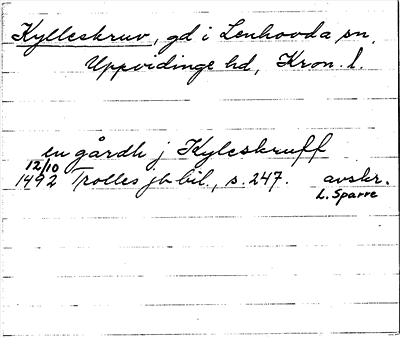 Kylleskruv, gd i Lenhovda sn,
Uppvidinge hd, Kron. l.
en gårdh j Kyleskruff
12/10
1492 Trolles jb bil., s. 247. avskr.
L. Sparre